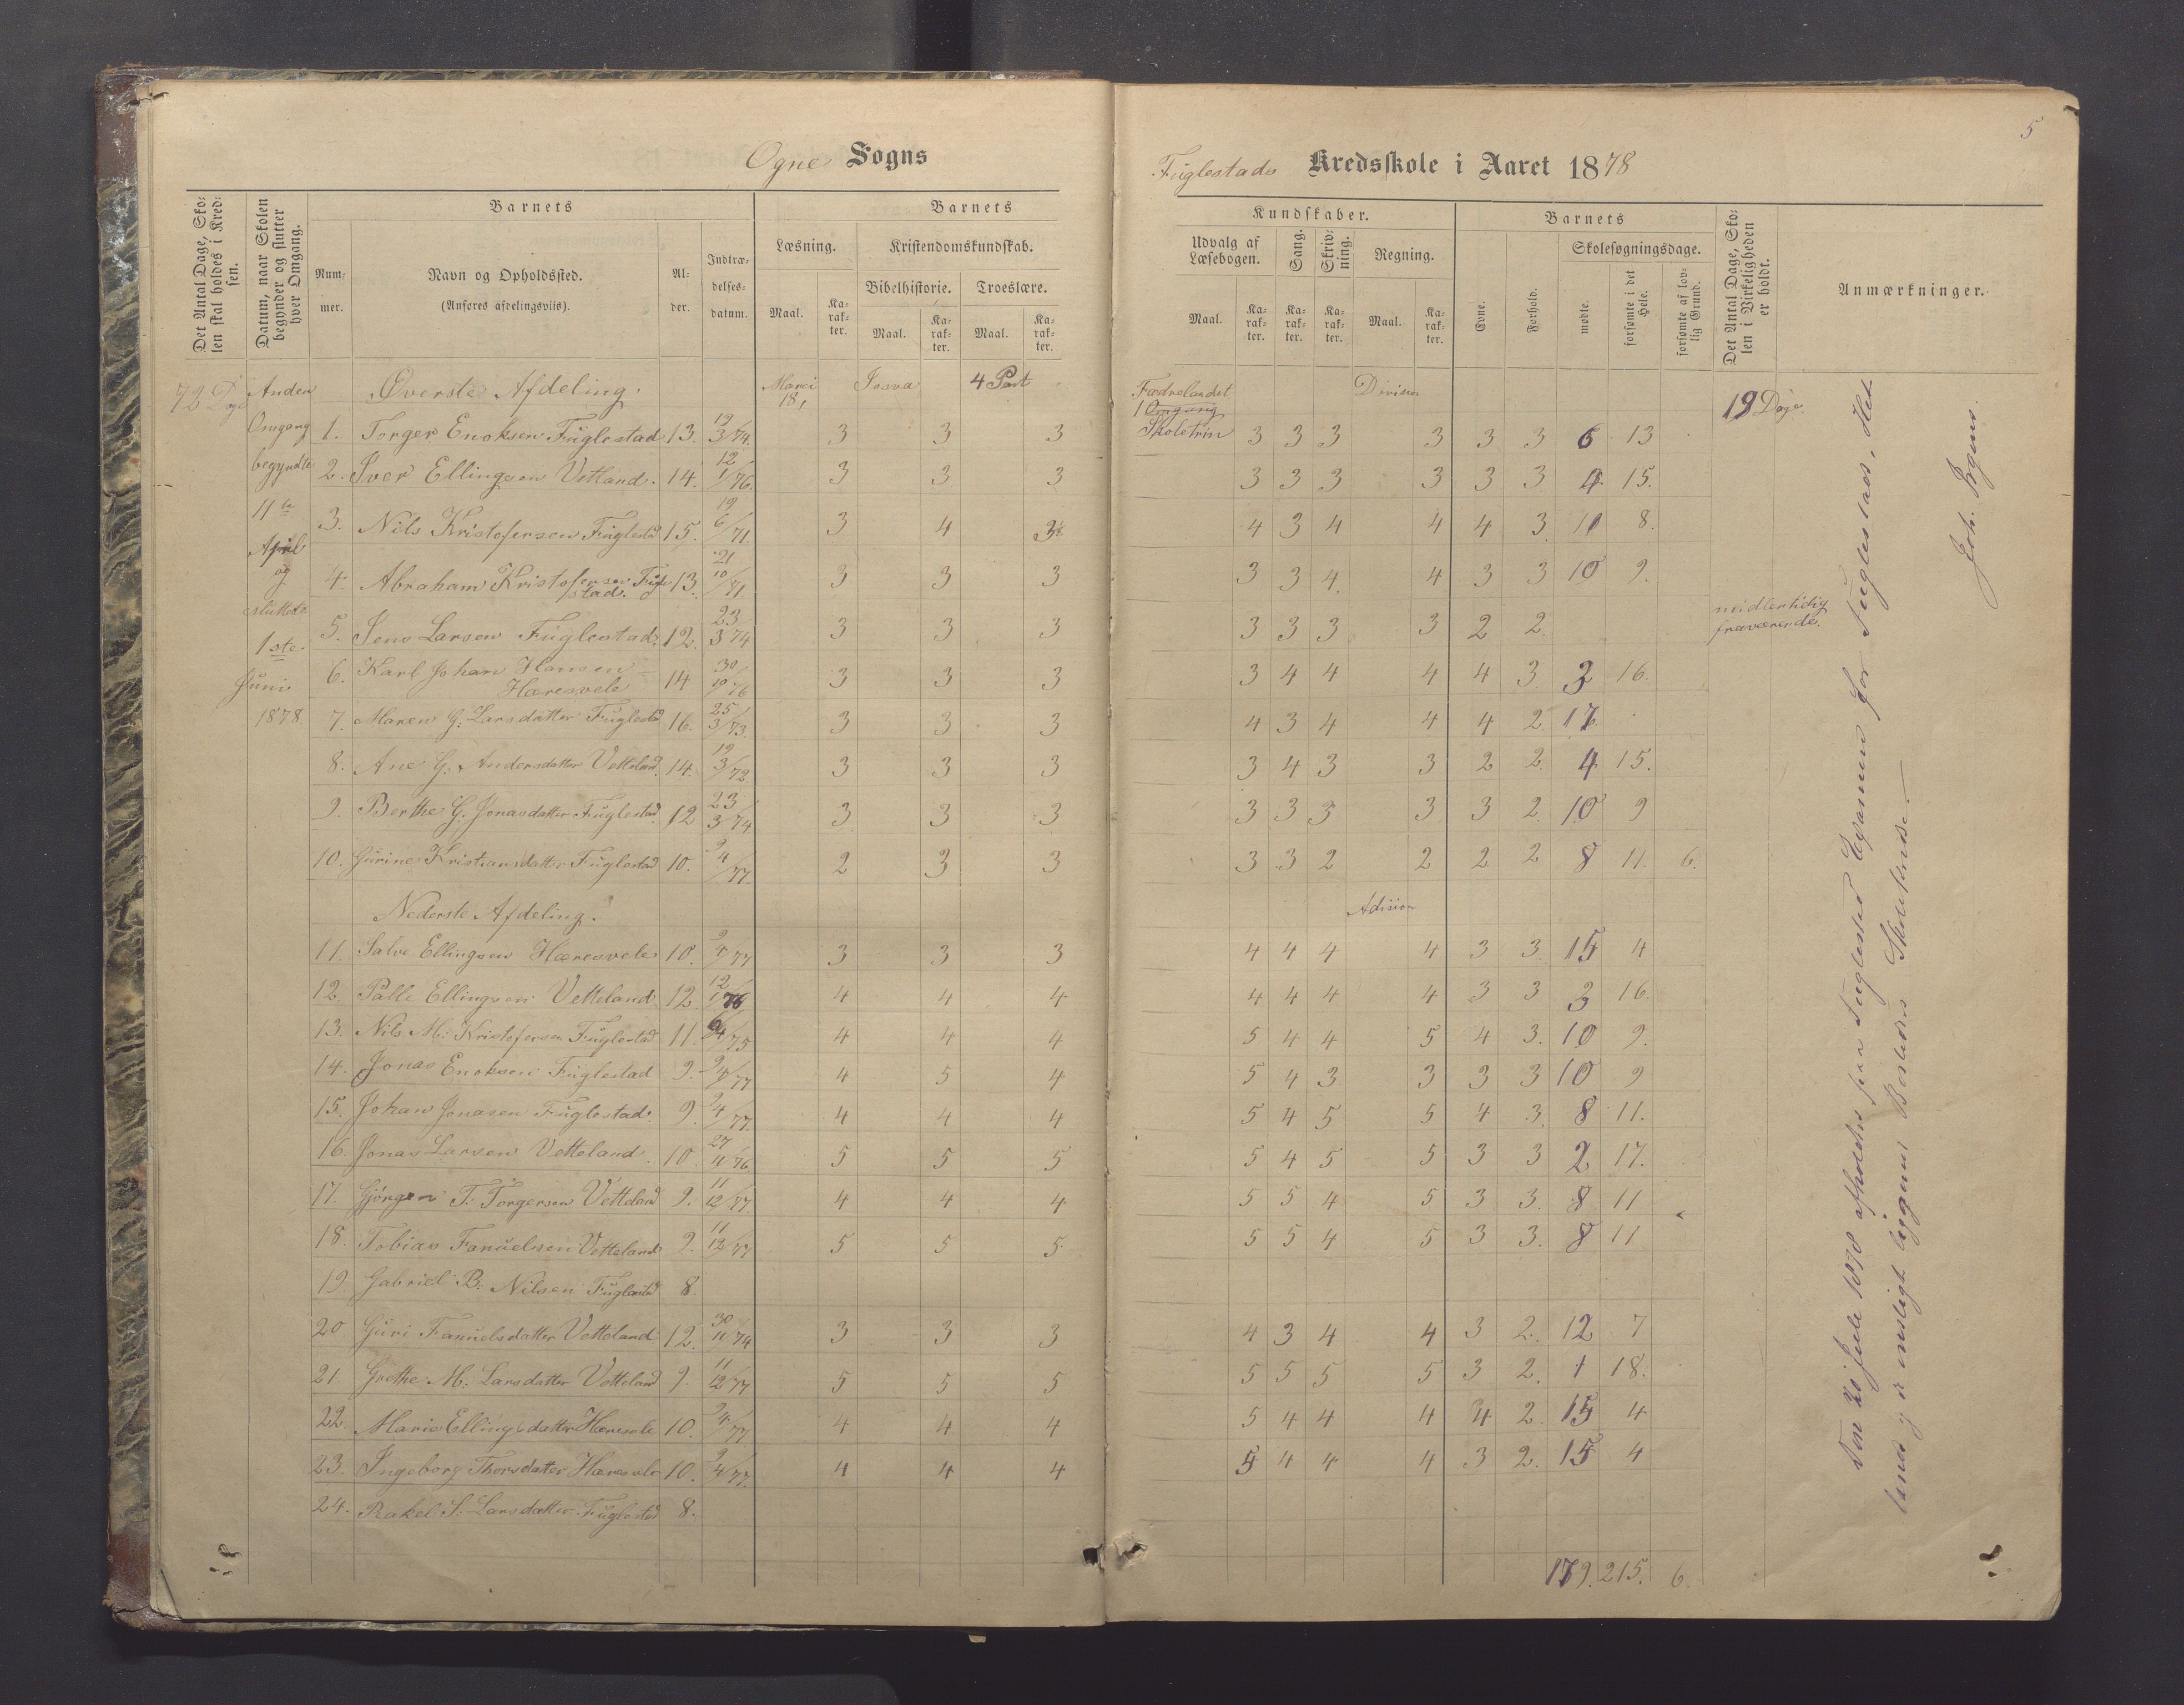 5
Ogne Sogns
Fuglestads Kredsskole i Aaret 1878
Det Antal Dage, Sko-
len skal holdes i Kred-
sen.
Datum, naar Skolen
begynder og slutter
hver Omgang.
Barnets
Num-
mer.
Navn og Opholdssted.
(Anføres afdelingsviis).
Al-
der.
Indtræ-
delses-
datum.
Barnets
Læsning.
Kristendomskundskab.
Bibelhistorie.
Troeslære.
Maal.
Ka-
rak-
ter.
Maal.
Ka-
rak-
ter.
Maal.
Ka-
rak-
ter.
Kundskaber.
Udvalg af
Læsebogen.
Sang.
Skriv-
ning.
Regning.
Maal.
Ka-
rak-
ter.
Ka-
rak-
ter.
Ka-
rak-
ter.
Maal.
Ka-
rak-
ter.
Barnets
Evne.
Forhold.
Skolesøgningsdage.
mødte.
forsømte i det
Hele.
forsømte af lov-
lig Grund.
Det Antal Dage, Sko-
len i Virkeligheden
er holdt.
Anmærkninger.
72 Dage
Anden
Omgang
begyndte
11te
April
og
sluttede
1ste
Juni
1878.
Øverste Afdeling. Marci 18, Josva 4 Part Fædrelandet 1 Omgang Skoletrin Division 19 Dage
1. Torger Enoksen Fuglestad 13. 19/3 74. 3 3 3 3 3 3 3 3 3 6 13
2. Iver Ellingsen Vetland. 14. 12/1 76. 3 3 3 3 3 3 3 3 3 4 15.
3. Nils Kristofersen Fuglestad 15. 19/6 71. 3 4 3 4 3 4 4 4 3. 11 8.
4. Abraham Kristofersen Fuglestad. 13. 21/10 71. 3 3 3 3 3 4. 4 3 3 10 9.
5. Jens Larsen Fuglestad. 12. 23/3 74 3 3 3 3 3 3 3 2 2 midlertidig fraværende.
6. Karl Johan Hansen Hæresvele 14 30/10 76 3 3 3 3 4 4 4 4 3 3 16.
7. Maren G. Larsdatter Fuglestad 16. 25/3 73. 3 3 3 4 3 4 4 4 2 17
8. Ane G. Andersdatter Vetteland 14. 19/3 72. 3 3 3 3 4 3 3 2 2. 4 15.
9. Berthe G. Jonasdatter Fuglestad 12 23/3 74 3 3 3 3 3 3 3 3 2. 10 9
10. Gurine Kristiansdatter Fuglestad 10. 9/4 77. 2 3 3 3 3 2 2 2 2 8 11. 6.
Nederste Afdeling. Adision
11. Salve Ellingsen Hæresvele 10. 9/4 77 3 3 3 4 4 4 4 3 3 15 4
12. Palle Ellingsen Vetteland 12. 12/1 76 4 4 4 4 4 4 4 3 3 3 16
13. Nils M. Kristofersen Fuglestad 11. 75 4 4 4 5 4 4 5 4 3. 10 9.
14. Jonas Enoksen Fuglestad 9. 9/4 77 4 5 4 5 4 3 3 3 3 10 9
15. Johan Jonasen Fuglestad. 9. 9/4 77. 4 4 4 5 4 5 5 4 3. 8 11.
16. Jonas Larsen Vetteland 10. 27/11 76 5 5 5 5 4 5 5 3 3 2 17.
17. Gjørgen T. Torgersen Vetteland 9. 11/12 77 4 4 4 5 5 4 5 3 3. 8 11
18. Tobias Fanuelsen Vetteland 9. 11/12 77 5 5 5 5 5 4 5 3 3. 8 11
19 Gabriel B. Nilsen Fuglestad 8.
20 Guri Fanuelsdatter Vetteland 12. 30/11 74 3 3 3 4 3 4 4 3 2. 12 7
21. Grethe M. Larsdatter Vetteland 9. 11/12 77 5 5 5 5 5 5 5 3 2. 1 18.
22. Marie Ellingsdatter Hæresvele 10. 9/4 77 4 4 4 5 4 4 4 4 2. 15 4
23. Ingeborg Thorsdatter Hæresvele 10. 9/4 77. 4 4 4 5 4 4 4 3 2. 15 4
24. Rakel S. Larsdatter Fuglestad 8.
179. 215. 6.
Den 20 Juli 1878 afholdtes paa Fuglestad Examen for Fuglestads, Het
lands Skolekredse.
Joh. Irgens.